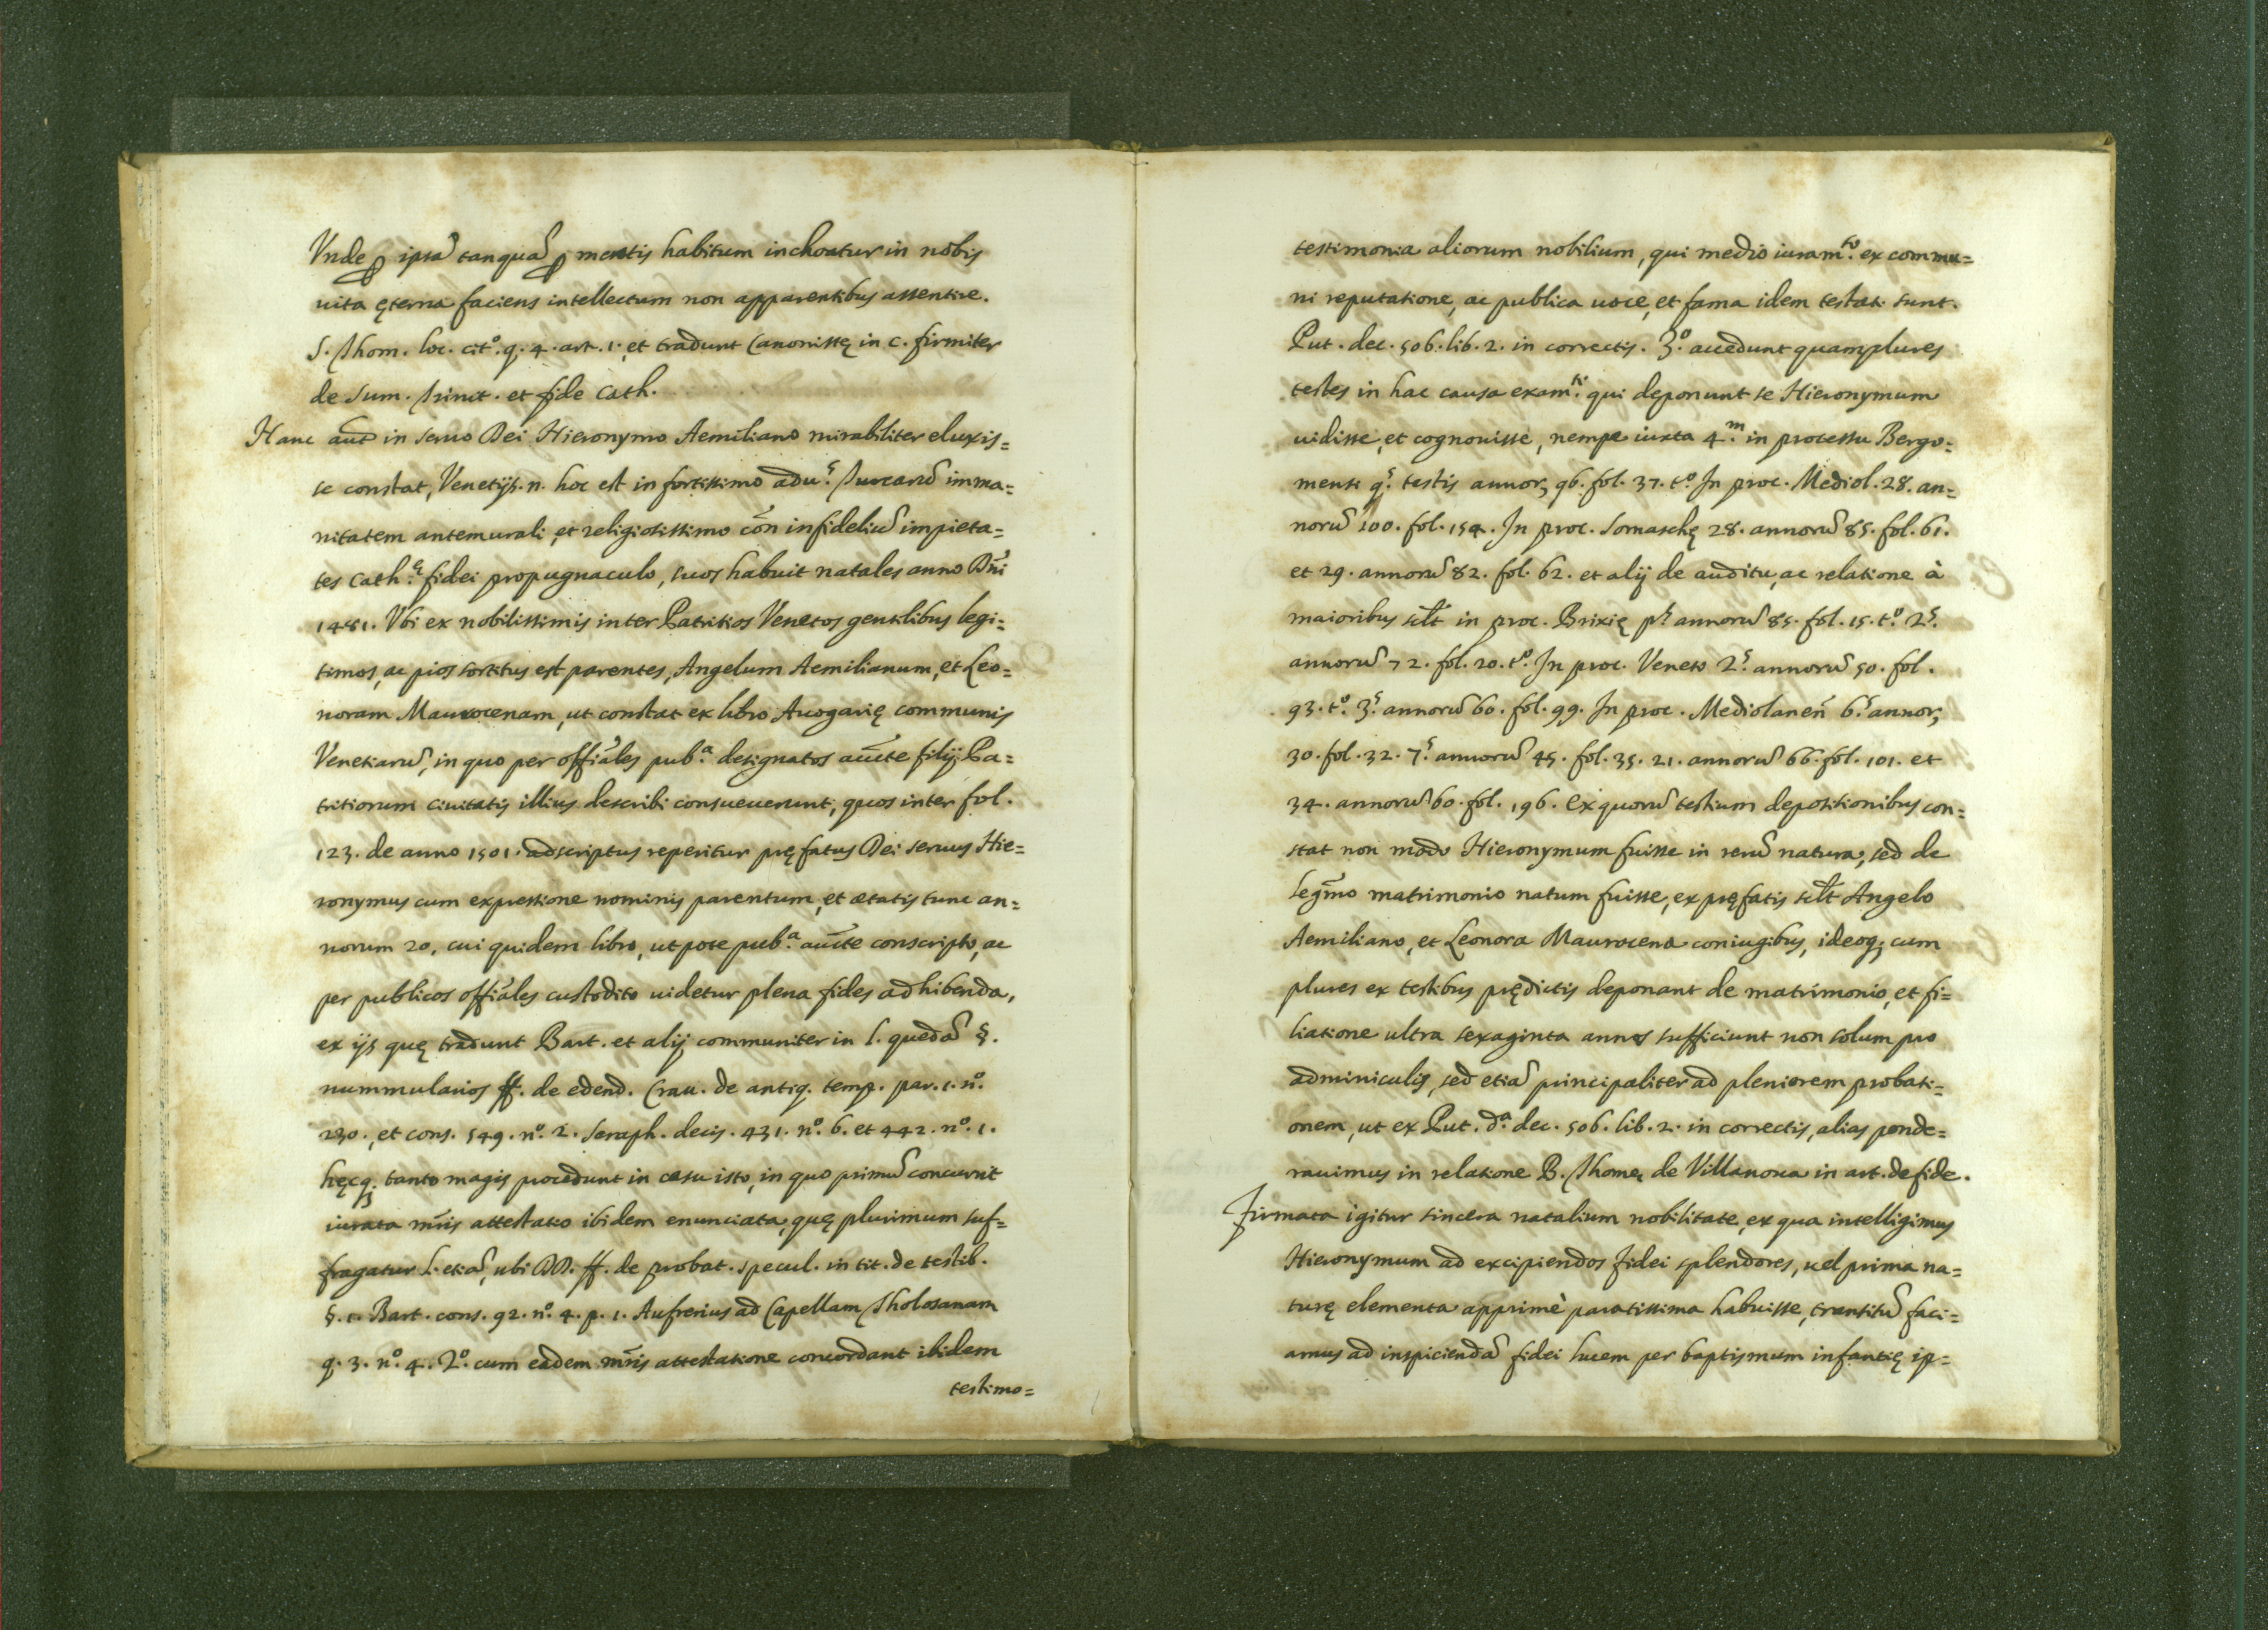 Vnde ꝑ ipsã tanquã ꝑ mentis habitum inchoatur in nobis
uita ęterna faciens intellectum non apparentibus assentire.
S. Thom. loc. cit.º q. 4. art. 1. et tradunt Canonistę in c. firmiter
de Sum. Trinit. et fide Cath.
Hanc aut̃ in seruo Dei Hieronymo Aemiliano mirabiliter eluxis=
se constat, Venetijs. n. hoc est in fortissimo adu.ˢ Turcarũ imma=
nitatem antemurali, et religiosissimo cõn infideliũ impieta=
tes Cath.ę fidei propugnaculo, suos habuit natales anno Dñi
1481. Vbi ex nobilissimis inter Patritios Venetos gentilibus legi=
timos, ac pios sortitus est parentes, Angelum Aemilianum, et Leo=
noram Maurocenam, ut constat ex libro Auogarię communis
Venetiarũ, in quo per offiãles pub.ª designatos auc̃te filij Pa=
tritiorum ciuitatis illius describi consueuerunt, quos inter fol.
123. de anno 1501. adscriptus reperitur pręfatus Dei seruus Hie=
ronymus cum expressione nominis parentum, et ætatis tunc an=
norum 20, cui quidem libro, utpote pub.ª auc̃te conscripto, ac
per publicos offiãles custodito uidetur plena fides adhibenda,
ex ijs quę tradunt Bart. et alij communiter in l. quedã §.
nummularios ff. de edend. Crau. de antiq. temp. par. 1. n.º
230., et cons. 549. n.º 2. Seraph. decis. 431. n.º 6. et 442. n.º 1.
hęcq; tanto magis procedunt in casu isto, in quo primũ concurrit
iurata mr̃is attestatio ibidem enunciata, quę plurimum suf=
fragatur l. etiã, ubi DD. ff. de probat. specul. in tit. de testib.
§. 1. Bart. cons. 92. n.º 4. p. 1. Aufrerius ad Capellam Tholosanam
q. 3. n.º 4. 2.º cum eadem mr̃is attestatione concordant ibidem
testimo=
testimonia aliorum nobilium, qui medio iuram.ᵗᵒ ex commu=
ni reputatione, ac publica uoce, et fama idem testati sunt.
Put. dec. 506. lib. 2. in correctis. 3.º accedunt quamplures
testes in hac causa exam.ᵗⁱ qui deponunt se Hieronymum
uidisse, et cognouisse, nempe iuxta 4.ᵐ in processu Bergo=
mensi q.ˢ testis annor; 96. fol. 37. t.º In proc. Mediol. 28. an=
norũ 100. fol. 154. In proc. Somaschę 28. annorũ 85. fol. 61.
et 29. annorũ 82. fol. 62. et alij de auditu, ac relatione à
maioribus scil̃t in proc. Brixię p.ˢ annorũ 85. fol. 15. t.º 2.ˢ
annorũ 72. fol. 20. t.º In proc. Veneto 2.ˢ annorũ 50. fol.
93. t.º 3.ˢ annorũ 60. fol. 99. In proc. Mediolanen̄ 6.ˢ annor;
30. fol. 32. 7.ˢ annorũ 45. fol. 35. 21. annorũ 66. fol. 101. et
34. annorũ 60. fol. 196. Ex quorũ testium depositionibus con=
stat non modo Hieronymum fuisse in rerũ natura, sed de
legm̃o matrimonio natum fuisse, ex pręfatis scil̃t Angelo
Aemiliano, et Leonora Maurocena coniugibus, ideoq; cum
plures ex testibus prędictis deponant de matrimonio, et fi=
liatione ultra sexaginta annos sufficiunt non solum pro
adminiculis, sed etiã principaliter ad pleniorem probati=
onem, ut ex Put. d.ª dec. 506. lib. 2. in correctis, alias ponde=
rauimus in relatione B. Thomę de Villanoua in art. de fide.
Firmata igitur sincera natalium nobilitate, ex qua intelligimus
Hieronymum ad excipiendos fidei splendores, uel prima na=
turę elementa apprimè paratissima habuisse, transitũ faci=
amus ad inspiciendã fidei lucem per baptismum infantię ip=